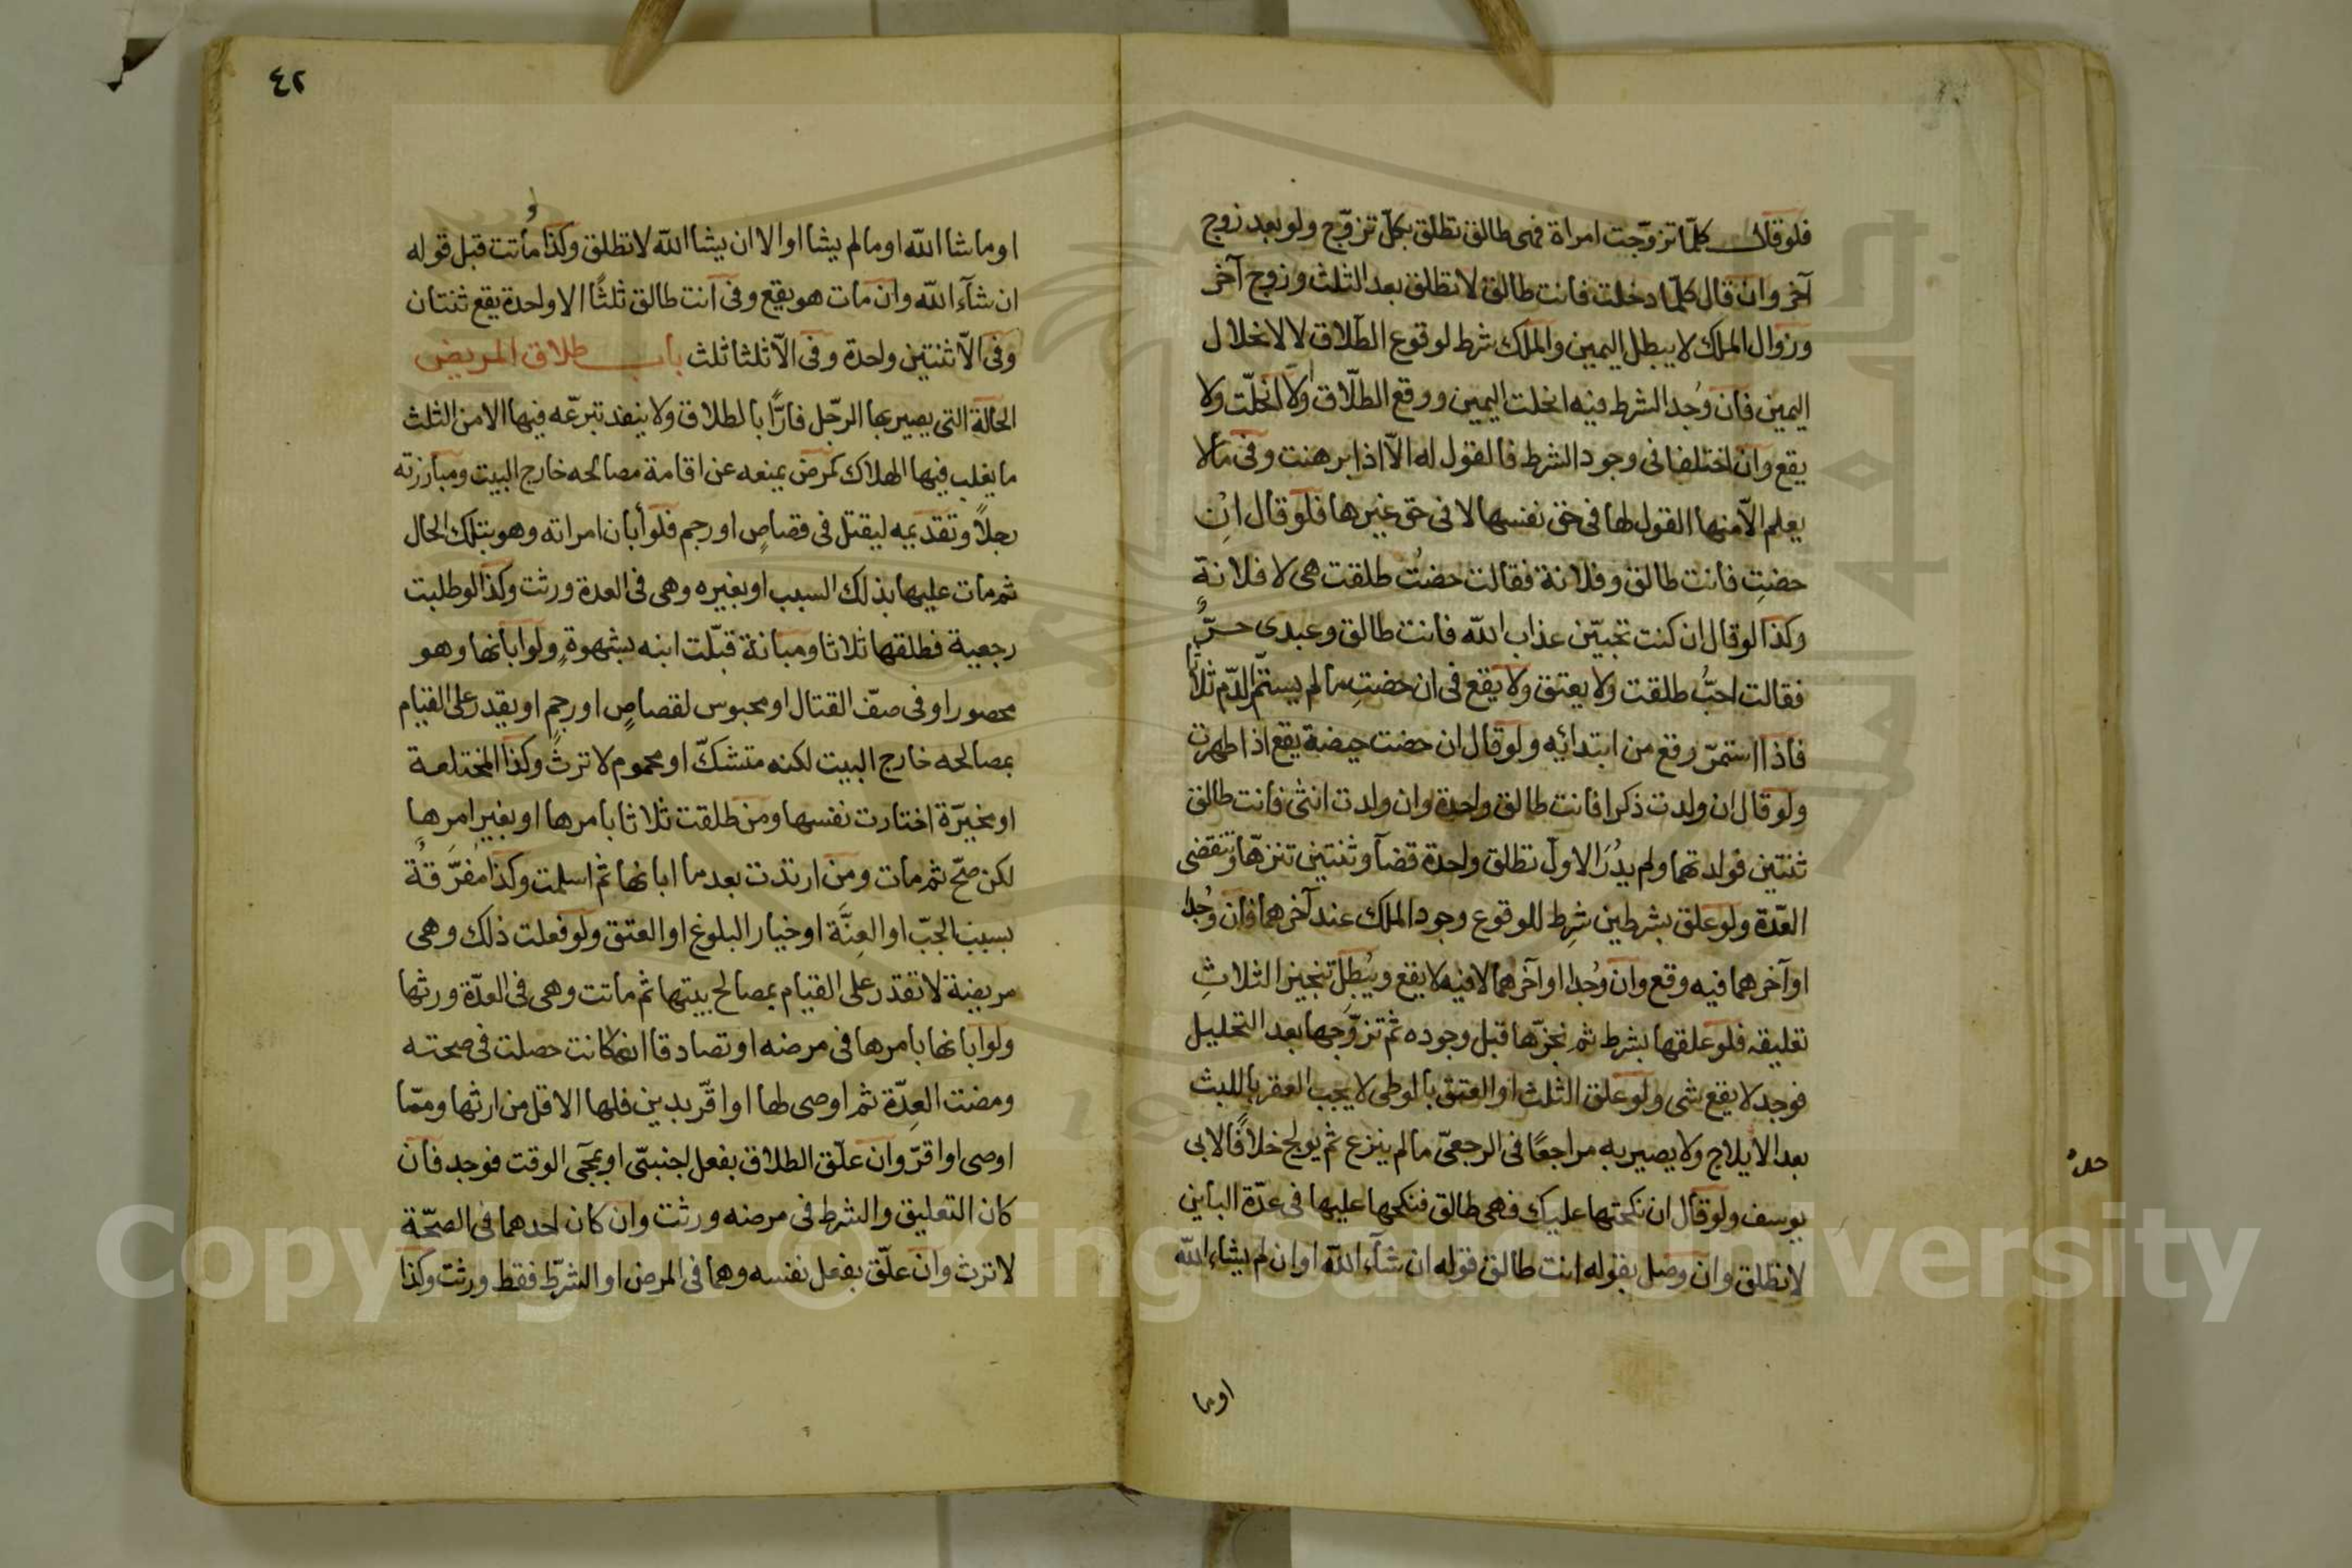 فلو قال كلّما تزوّجت امراة فهى طالق تطلق بكلّ تزوّج ولو بعد زوج
آخر وان قال كلّما دخلت فانت طالق لا تطلق بعد الثلث وزوج آخر
وزوال الملك لا يبطل اليمين والملك شرط لوقوع الطّلاق لا لانحلال
اليمين فان وُجد الشرط فيه انحلت اليمين ووقع الطلّاق والّا انحلّت ولا
يقع وان اختلفا فى وجود الشرط فالقول له الّا اذا برهنت وفى ما لا
يعلم الّا منها القول لها فى حق نفسها لا فى حق غيرها فلو قال ان
حضتِ فانت طالق وفلانة فقالت حضتُ طلقت هى لا فلانةٍ
وكذا لو قال ان كنت تحبّين عذاب الله فانت طالق وعبدى حرٌّ
فقالت احبُّ طلقت ولا يعتق ولا يقع فى ان حضتِ ما لم يستمّ الدّم ثلاثا
فاذا استمرّ وقع من ابتدائه ولو قال ان حضت حيضة يقع اذا طهرت
ولو قال ان ولدت ذكرا فانت طالق واحدة وان ولدت انثى فانت طالق
ثنتين فولدتهما ولم يُدرَ الاول تطلق واحدة قضآ وثنتين تنزهّا وتنقضى
العّدة ولو علق بشرطين شرِط للوقوع وجود الملك عند آخرهما فان وُجدا
او آخرهما فيه وقع وان وُجدا او آخرهما لا فيه لا يقع ويُبطِل تنجيز الثلاثِ
تعليقه فلو علقها بشرط ثم نجزّها قبل وجوده ثم تزوّجها بعد التحليل
فوجد لا يقع شى ولو علق الثلث او العتق بالوطى لا يجب العقر باللبث
بعد الايلاج ولا يصير به مراجعًا فى الرجعىّ ما لم ينزع ثم يولج خلافًا لابى
يوسف ولو قال ان نكحتها عليك فهى طالق فنكحها عليها فى عدّة الباين
لا تطلق وان وصل بقوله انت طالق قوله ان شآء اللّه او ان لم يشاء اللّه
اوما
٤٢
او ما شا اللّه او ما لم يشا او الا ان يشا اللّه لا تطلق وكذا لو ماتت قبل قوله
ان شآء اللّه وان مات هو يقع وفى انت طالق ثلثًا الا واحدة يقع ثنتان
وفى الاّ ثنتين واحدة وفى الاّ ثلثا ثلث باب طلاق المريض
الحالة التى يصير بها الرجّل فارًّا بالطلاق ولا ينفد تبرّعه فيها الا من الثلث
ما يغلب فيها الهلاك كمرض يمنعه عن اقامة مصالحه خارج البيت ومبارزته
رجلاً وتقديمه ليقتل فى قصاصٍ او رجم فلو أبان امراته وهو بتلك الحال
ثم مات عليها بذلك السبب او بغيره وهى فى العدة ورثت وكذا لو طلبت
رجعية فطلقها ثلاثا ومبانة قبّلت ابنه بشهوةٍ ولو ابانها وهو
محصور او فى صفّ القتال او محبوس لقصاصٍ او رجمٍ او يقدر على القيام
بمصالحه خارج البيت لكنه متشكّ او محموم لا ترثُ وكذا المختلعة
او مخيّرة اختارت نفسها ومن طلقت ثلاثا بامرها او بغير امرِها
لكن صحّ ثم مات ومن ارتدّت بعد ما ابانها ثم اسلمت وكذا مُفرَّقةٌ
بسبب الجبّ او العِنَّة او خيار البلوغ او العتق ولو فعلت ذلك وهى
مريضة لا تقدر على القيام بمصالح بيتها ثم ماتت وهى فى العدّة ورثها
ولو ابانها بامرها فى مرضه او تصادقا انها كانت حصلت فى صحته
ومضت العِدّة ثم اوصى لها او اقّر بدين فلها الاقل من ارثها وممّا
اوصى او اقرّ وان علّق الطلاق بفعل اجنبىّ او بمجّى الوقت فوجد فان
كان التعليق والشرط فى مرضه ورثت وان كان احدهما فى الصحّة
لا ترث وان علّق بفعل نفسه وهما فى المرض او الشرّط فقط ورثت وكذا
Copyright © King Saud University